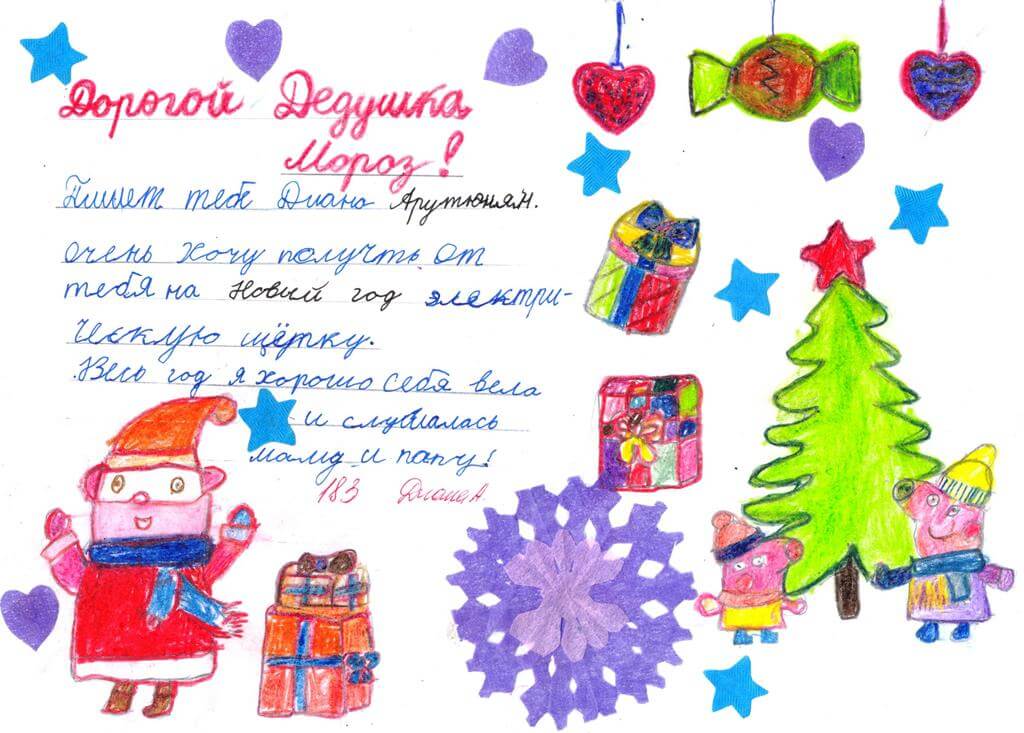 Дорогой Дедушка
Мороз!
Пишет тебе Диана Арутюнян.
очень хочу получть от
тебя на Новый год электри-
ческую щётку.
Весь год я хорошо себя вела
и слушалась
маму и папу!
183 Диана А